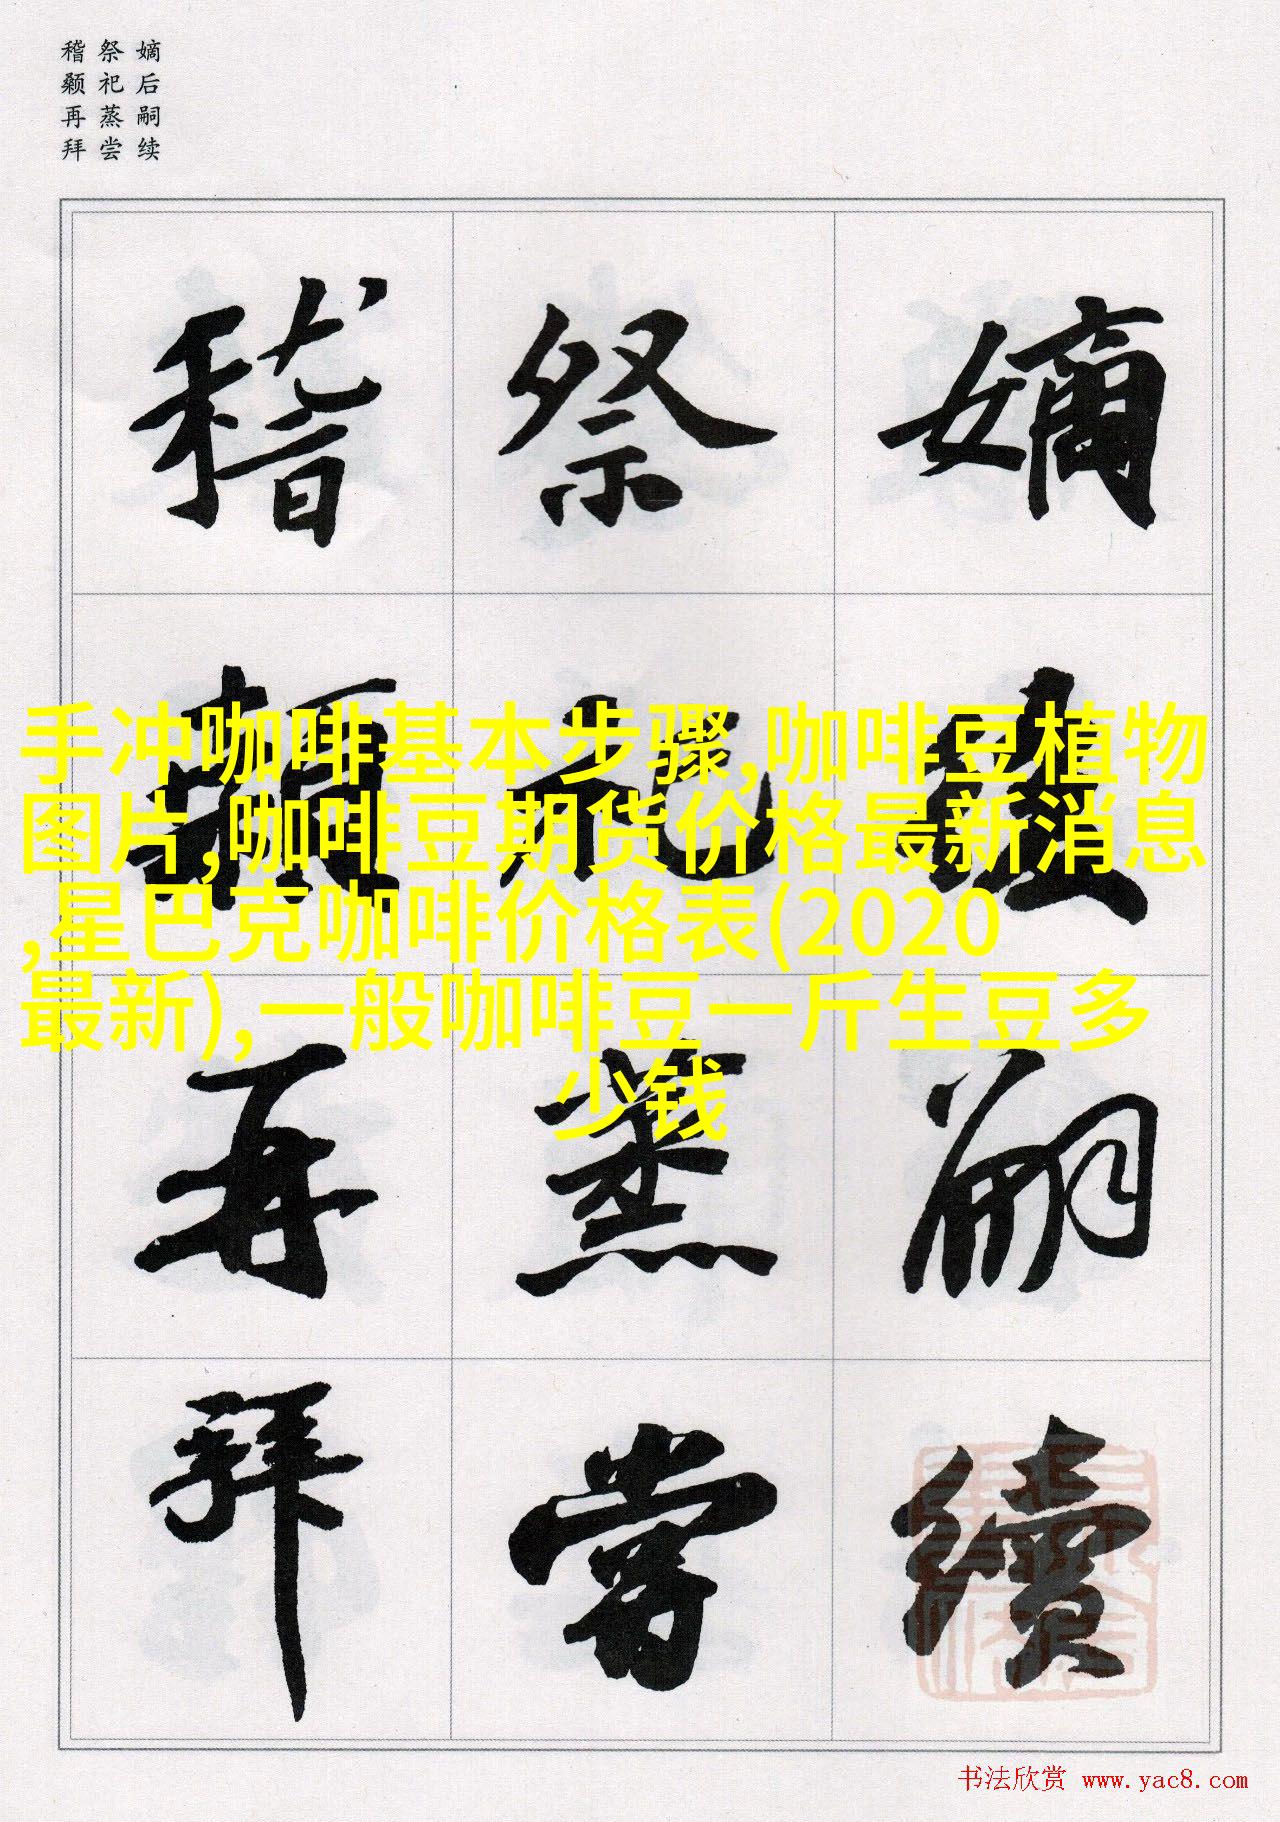 嫡后嗣续
祭祀蒸尝
稽颡再拜
嫡后嗣續
祭祀蒸嘗
稽顙再拜
手冲咖啡基本步骤,咖啡豆植物
图片,咖啡豆期货价格最新消息
,星巴克咖啡价格表(2020
最新),一般咖啡豆一斤生豆多
少钱
书法欣赏 www.yac8.com